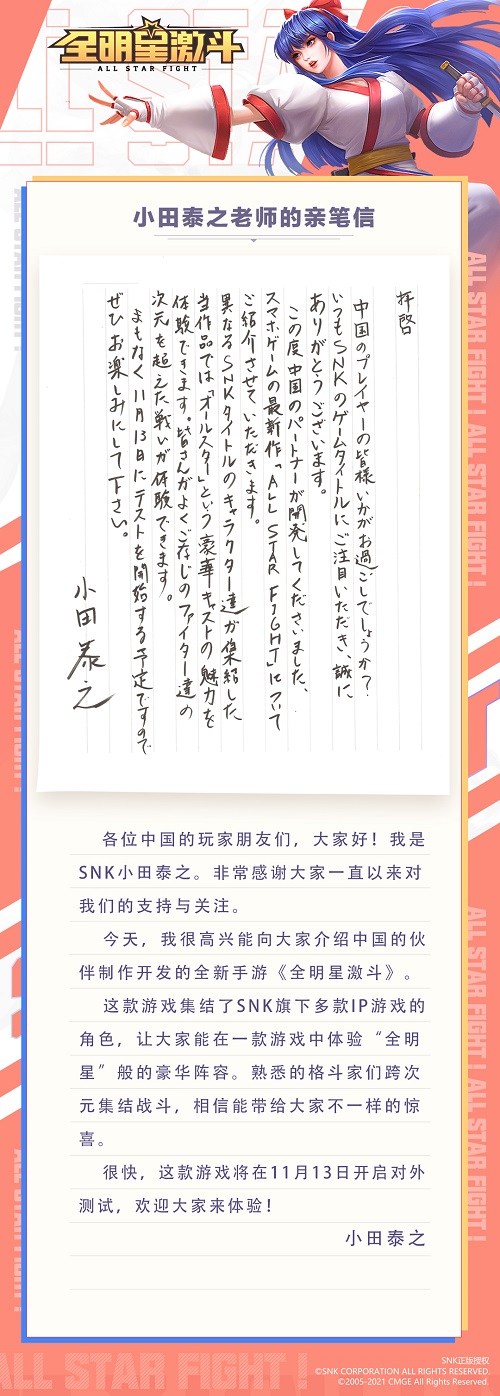 全明星激斗
ALL STAR FIGHT
小田泰之老师的亲笔信
拝啓
中国のプレイヤーの皆様いかがお過ごしでしょうか?
いつもSNKのゲームタイトルにご注目いただき、誠に
ありがとうございます。
この度中国のパートナーが開発してくださいました、
スマホゲームの最新作「ALL STAR FIGHT」について
ご紹介させていただきます。
異なるSNKタイトルのキャラクター達が集結した
当作品では「オールスター」という豪華キャストの魅力を
体験できます。皆さんがよくご存じのファイター達の
次元を超えた戦いが体験できます。
まもなく11月13日にテストを開始する予定ですので
ぜひお楽しみにして下さい。
小田泰之
各位中国的玩家朋友们，大家好！我是
SNK小田泰之。非常感谢大家一直以来对
我们的支持与关注。
今天，我很高兴能向大家介绍中国的伙
伴制作开发的全新手游《全明星激斗》。
这款游戏集结了SNK旗下多款IP游戏的
角色，让大家能在一款游戏中体验“全明
星”般的豪华阵容。熟悉的格斗家们跨次
元集结战斗，相信能带给大家不一样的惊
喜。
很快，这款游戏将在11月13日开启对外
测试，欢迎大家来体验！
小田泰之
ALL STAR FIGHT ! ALL STAR FIGHT !
ALL STAR FIGHT ! ALL STAR FIGHT !
ALL STAR FIGHT !
SNK正版授权
©SNK CORPORATION ALL RIGHTS RESERVED.
©2005-2021 CMGE All Rights Reserved.